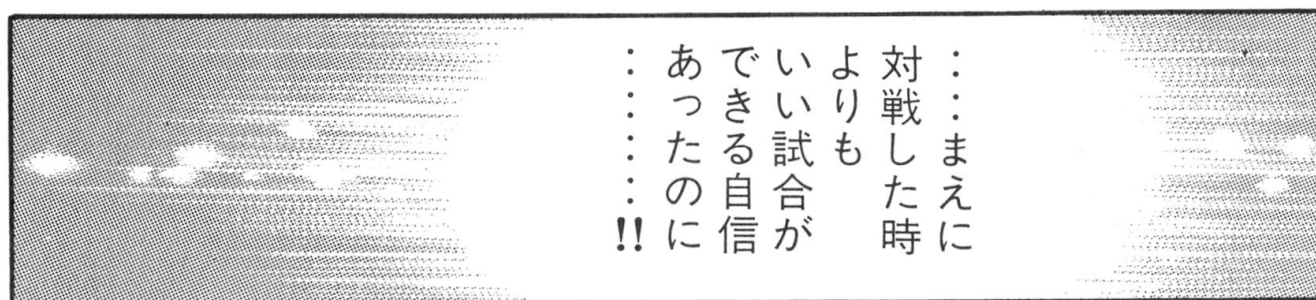 ……まえに
対戦した時
よりも
いい試合が
できる自信
あったのに
…………!!